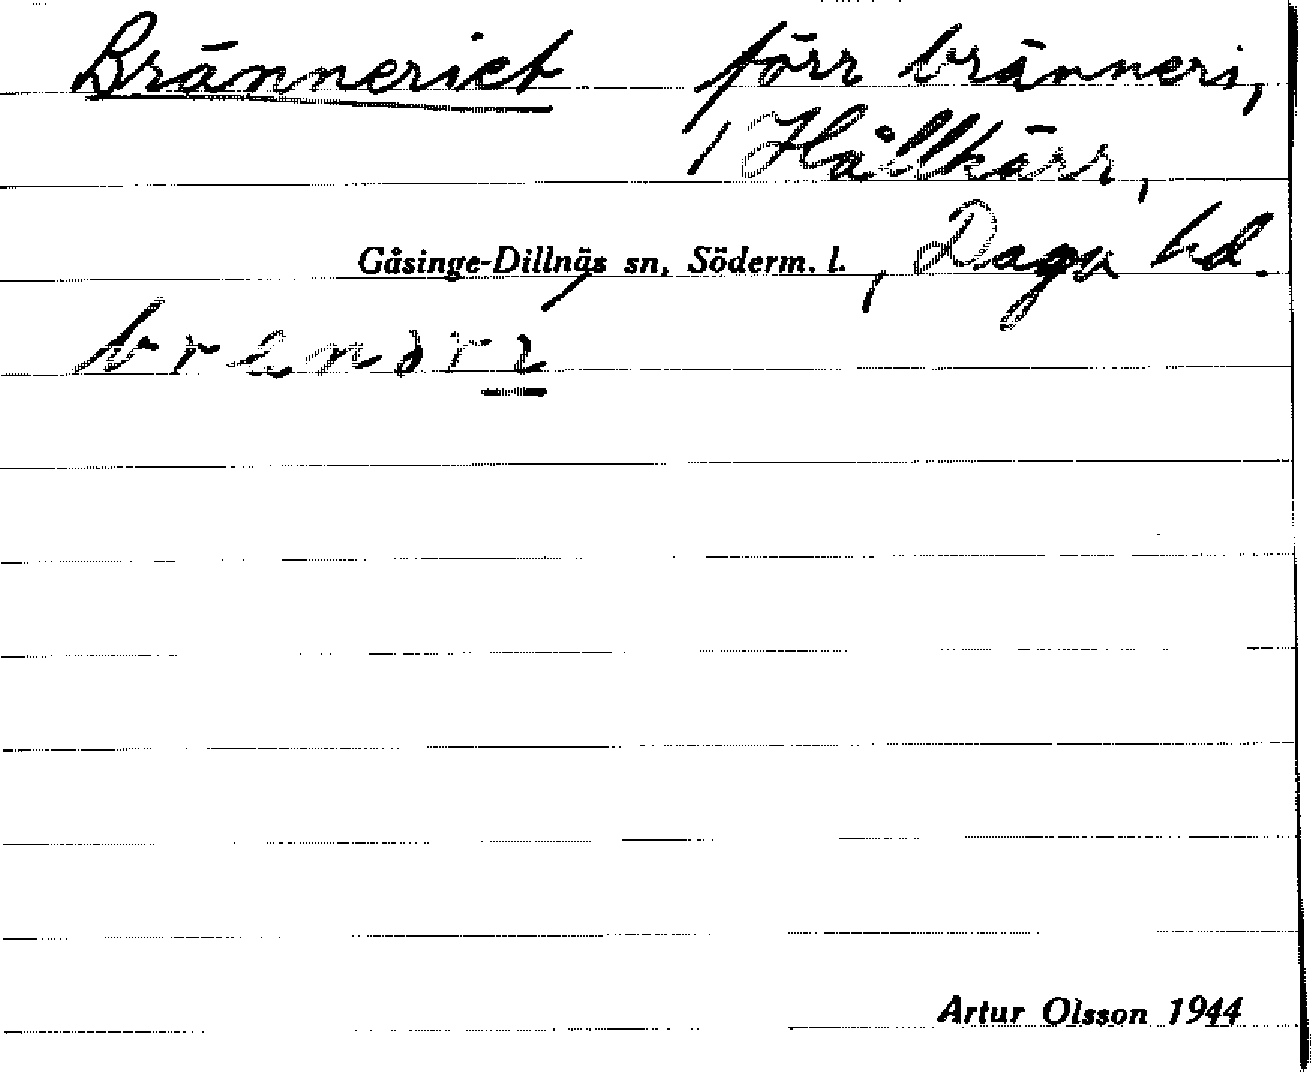 Bränneriet förr bränneri,
/ Hållkärr,
Gåsinge-Dillnäs sn, Söderm. l., Daga hd.
Artur Olsson 1944